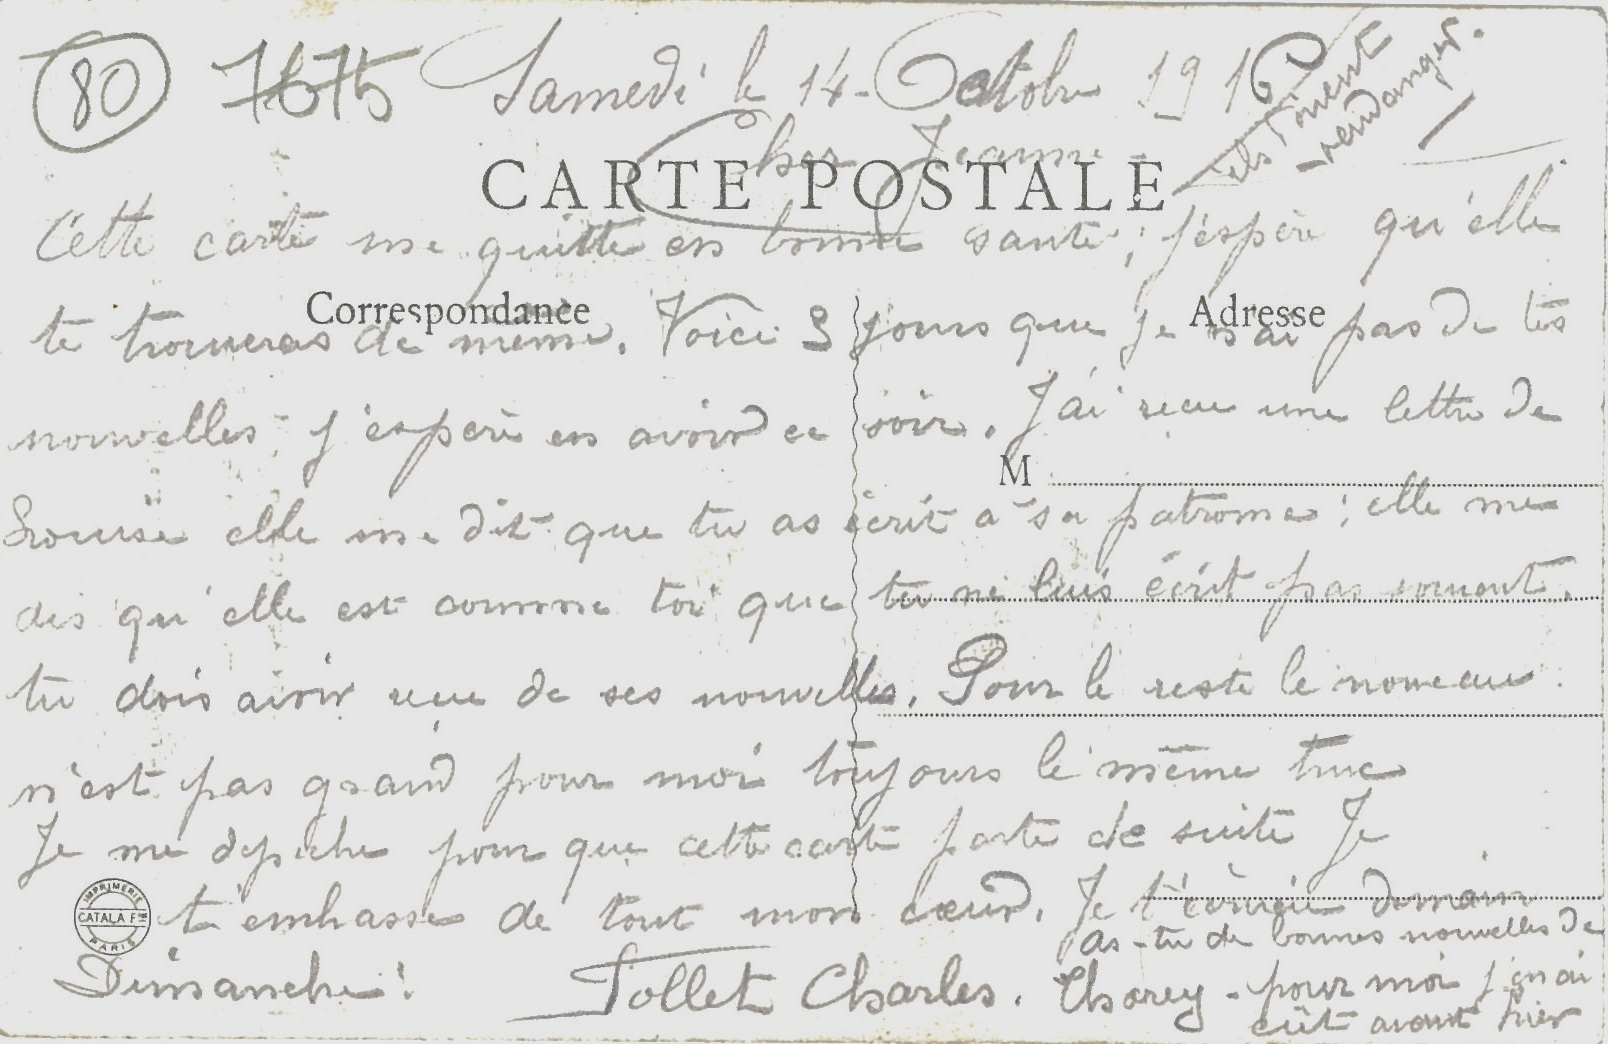 80 7675 Samedi le 14 Octobre 1916
ils finent
vendanger.
Cher Jeanne
CARTE POSTALE
Cette carte me quitte en bonne santé; j'espère qu'elle
Correspondance
Adresse
te trouveras de même. Voici 3 jours que je n'ai pas de tes
nouvelles; j'espère en avoir ce soir. J'ai recu une lettre de
M
Louise elle me dit que tu as écrit a sa patronne; elle me
dis qu'elle est comme toi que tu ne luis écrit pas souvent.
tu dois avoir recu de ses nouvelles. Pour le reste le nouveau
n'est pas grand pour moi toujours le même truc
Je me dépêche pour que cette carte parte de suite Je
t'embasse de tout mon cœur. Je t'écrirai demain
IMPRIMERIE
CATALA Fres
PARIS
Dimanche!
Tollet Charles.
as-tu de bonnes nouvelles de
Thorey - pour moi j'en ai
eût avant hier